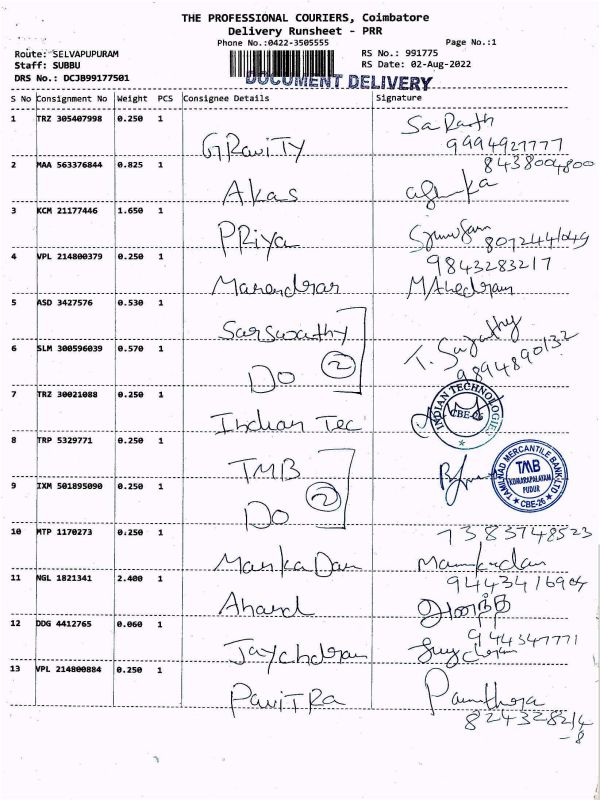 THE PROFESSIONAL COURIERS, Coimbatore
Delivery Runsheet - PRR
Phone No.:0422-3505555 Page No.:1
Route: SELVAPUPURAM RS No.: 991775
Staff: SUBBU RS Date: 02-Aug-2022
DRS No.: DCJB99177501 DOCUMENT DELIVERY
S No Consignment No Weight PCS Consignee Details Signature
1 TRZ 305407998 0.250 1 GRaviTY Sa Ranth
9994927777
8438004800
2 MAA 563376844 0.825 1 Akas
3 KCM 21177446 1.650 1 PRiya
8072441049
4 VPL 214800379 0.250 1 9843283217
Marendrar MAhedran
5 ASD 3427576 0.530 1 Sarswathy
6 SLM 300596039 0.570 1 Do 2 T. Sajathy
9894890132
7 TRZ 30021088 0.250 1 Indian Tec INDIAN TECHNOLOGIES CBE-26
8 TRP 5329771 0.250 1 TMB
TAMILNAD MERCANTILE BANK LTD TMB KOMARAPALAYAM PUDUR CBE-26
9 IXM 501895090 0.250 1 Do 2
10 MTP 1170273 0.250 1 7383748523
Manka Dan
11 NGL 1821341 2.400 1 9443416904
Anand ஆனந்த்
12 DDG 4412765 0.060 1 944347771
Jaychdran
13 VPL 214800884 0.250 1 PaviTRa
824328214
-8